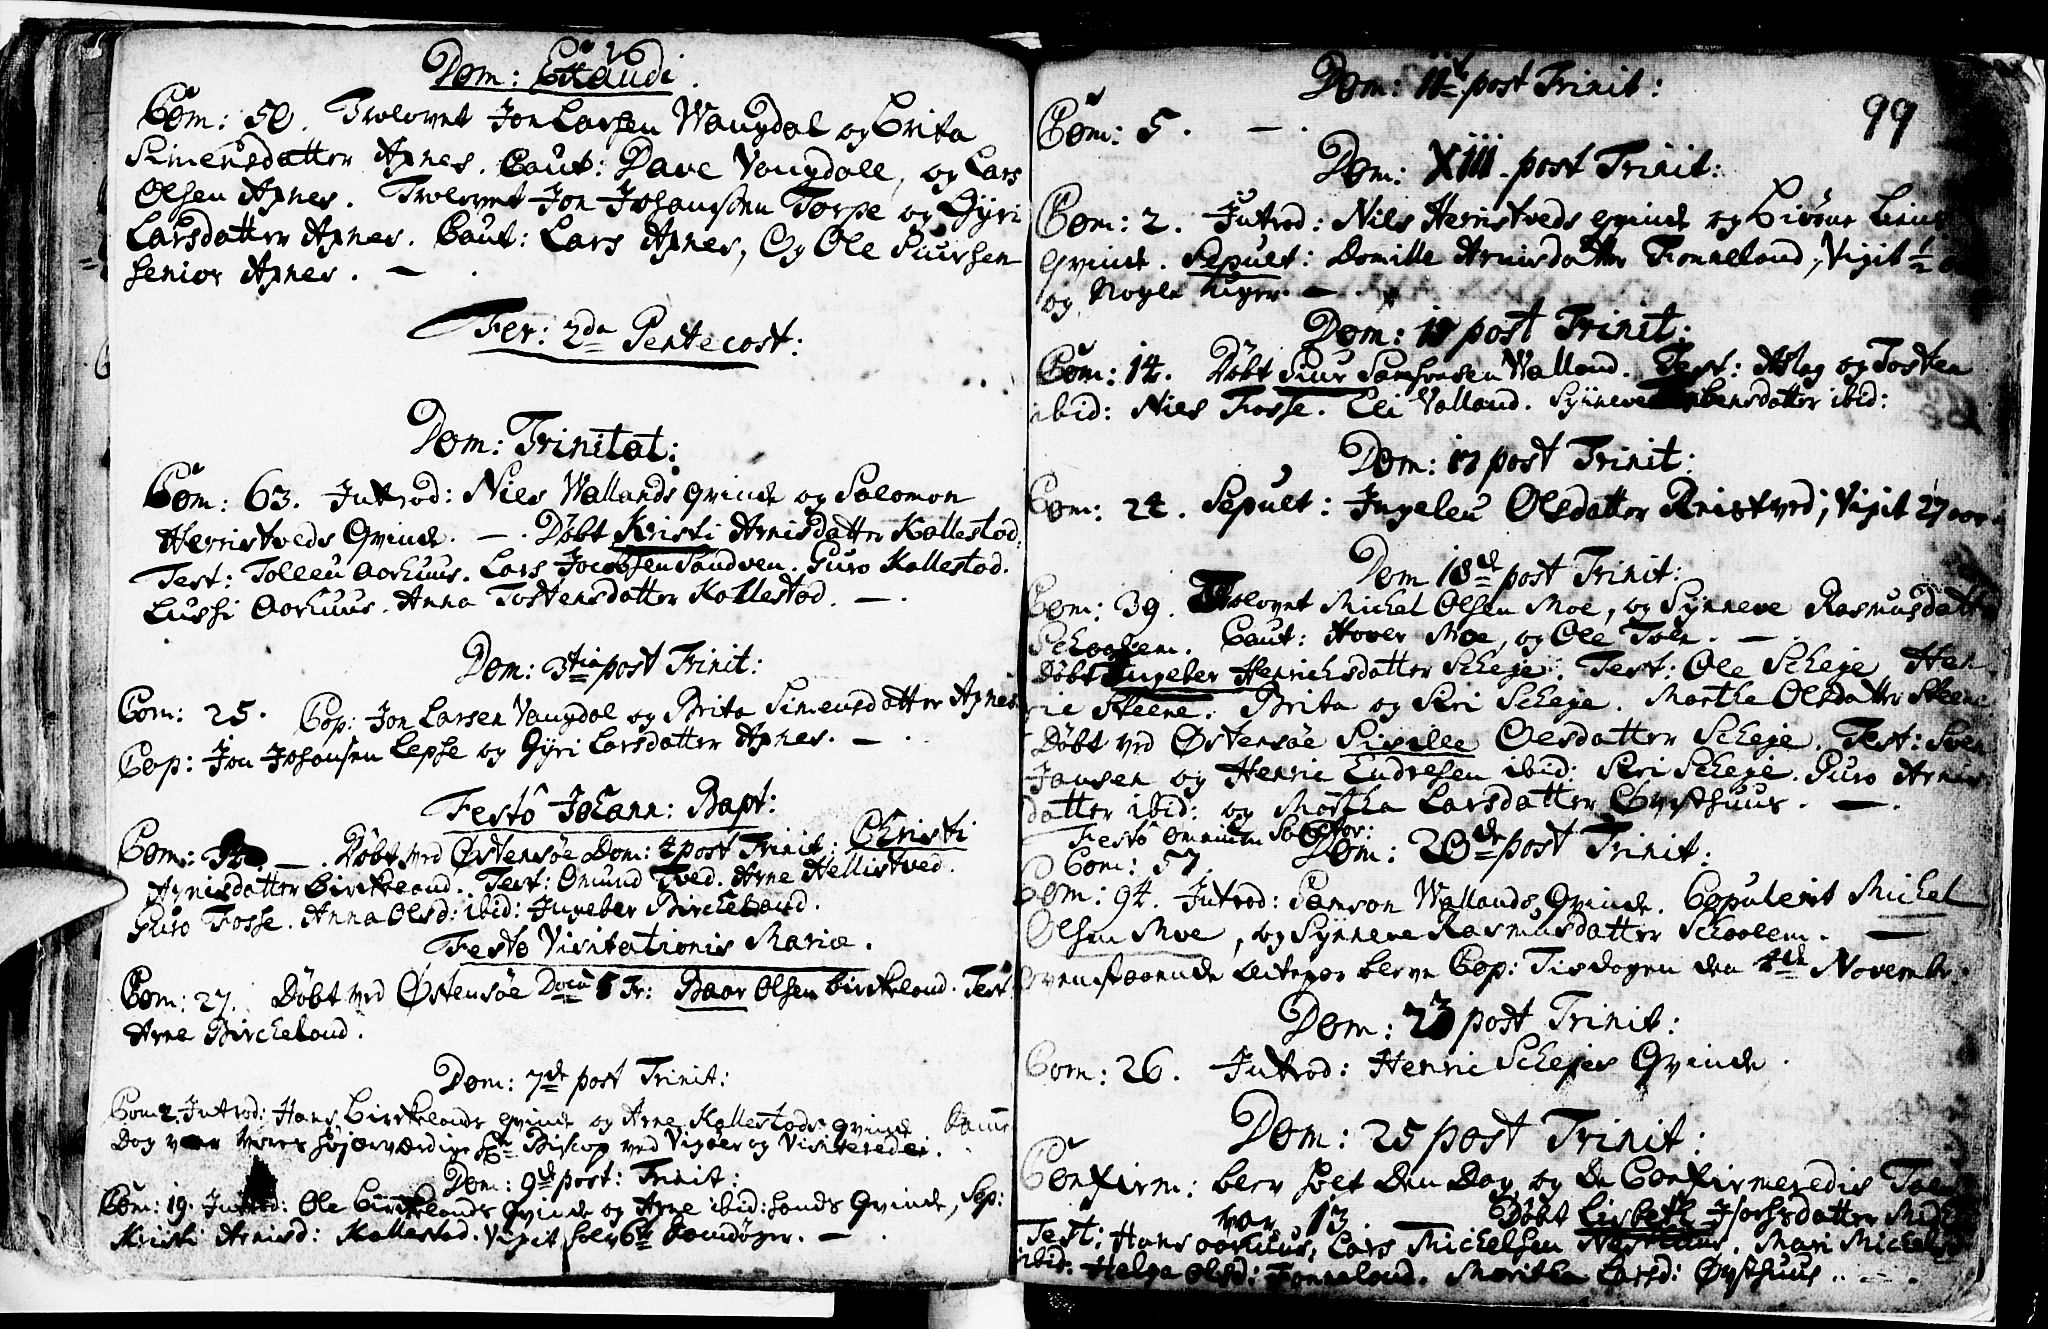 Dom: Exaudi.
Com: 50. Trolovet Jon Larsen Vangdal og Brita
Simensdatter Axnes. Caut: Dave Vangdall, og Lars
Olsen Axnes. Trolovet Jon Johansen Torpe og Gyri
Larsdatter Axnes. Caut: Lars Axnes, Og Ole Siursen
senior Axnes. —
Fer: 2da Pentecost:
Dom: Trinitat:
Com: 63. Introd: Niels Wallands Qvinde og Salomon
Herristveds Qvinde. —. Döbt Kristi Arnisdatter Kallestad:
Test: Tolleu Aarhuus. Lars Jacobsen Sandven. Guro Kallestad.
Lussi Aarhuus. Anna Tostensdatter Kallestad. —.
Dom: 3tia post Trinit:
Com: 25. Cop: Jon Larsen Vangdal og Brita Simensdatter Axnes
Cop: Jon Johansen Lepse og Gyri Larsdatter Axnes. —.
Festo Johann: Bapt:
Com: —. Döbt ved Östensöe Dom: 4 post Trinit: Christi
Arnisdatter Birkeland. Test: Omund Tved. Arne Hellistved.
Guro Fosse. Anna Olsd: ibid: Ingeber Birckeland.
Festo Visitationis Mariæ.
Com: 27. Döbt ved Östensöe Dom 5 Tr: Baar Olsen Birkeland. Test
Arne Birckeland.
Dom: 7de post Trinit:
Com 2. Introd: Hans Birkelands qvinde og Arne Kallestads qvinde Samme
Dag var vores höjærværdige Hr Biscop ved Vigöer og Visiterede.
Dom: 9de post: Trinit:
Com: 19. Introd: Ole Birkelands Qvinde og Arne ibid: hands Qvinde, Sep:
Kristi Arnisd: Kallestad. Vixit halv 6te Samdöger. —.
99
Dom: 11te post Trinit:
Com: 5. —.
Dom: XIII. post Trinit:
Com: 2. Introd: Niels Herristveds qvinde og
Qvinde. Sepult: Domille Arnisdatter Fonneland, Vixit ½
og Nogle uger. —.
Dom: post Trinit:
Com: 14. Döbt Siur Samsonsen Walland. Test: Aslag og Tosten
ibid: Niels Fosse. Eli Valland. Synneve datter ibid:
Dom: 17 post Trinit:
Com: 24. Sepult: Ingeleu Olsdatter Qvistved; Vixit 27 aar.
Dom 18de post Trinit:
Com: 39. Trolovet Michel Olsen Moe, og Synneve Rasmusdatter
Schaalem. Caut: Haver Moe, og Ole Toln. —.
Döbt Ingeber Henrichsdatter Scheje. Test: Ole Scheje Hen
rie Steene. Brita og Siri Scheje. Marthe Olsdatter Steene
Döbt ved Östensöe Sisilee Olsdatter Scheje. Test: Sven
Jansen og Henric Endresen ibid: Siri Scheje. Guro Arnis
datter ibid: og Martha Larsdatter Öysthuus. —.
Festo Omnium Sanctor: Dom: 20de post Trinit:
Com: 57.
Com: 94. Introd: Samson Wallands Qvinde. Copulerit Michel
Olsen Moe, og Synneve Rasmusdatter Schaalem. —
ovenstaaende ectepar bleve Cop: Tisdagen den 4de Novembr.
Dom: 23 post Trinit:
Com: 26. Introd: Henric Schejes Qvinde.
Dom: 25 post Trinit:
Confirm: blev holt Den Dag og de Confirmeredis Tal
var 13. Döbt Lisbeth datter
Test: Hans Aarhuus, Lars Mickelsen Mari Mickels
ibid. Helga Olsd: Fonneland. Maritha Larsd: Öysthuus. —.